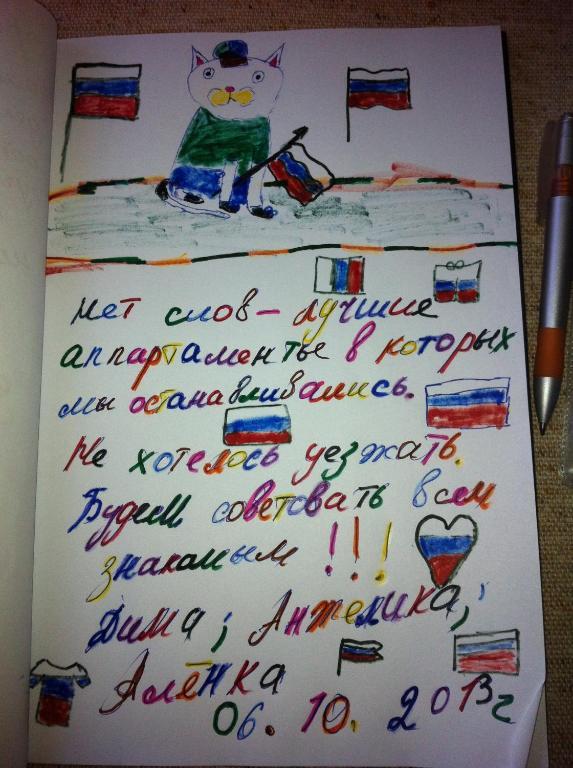 Нет слов - лучшие
аппартаменты в которых
мы останавливались.
Не хотелось уезжать.
Будем советовать всем
знакомым !!!
Дима; Анжелика;
Алёнка
06. 10. 2013г